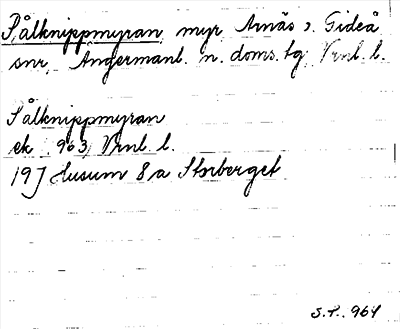 Pålknippmyran, myr Arnäs s. Gideå
snr, Ångermanl. n. doms. tg, Vrnl. l.
Pålknippmyran
ek 963, Vrnl. l.
19 J Husum 8 a Storberget
S.P. 964